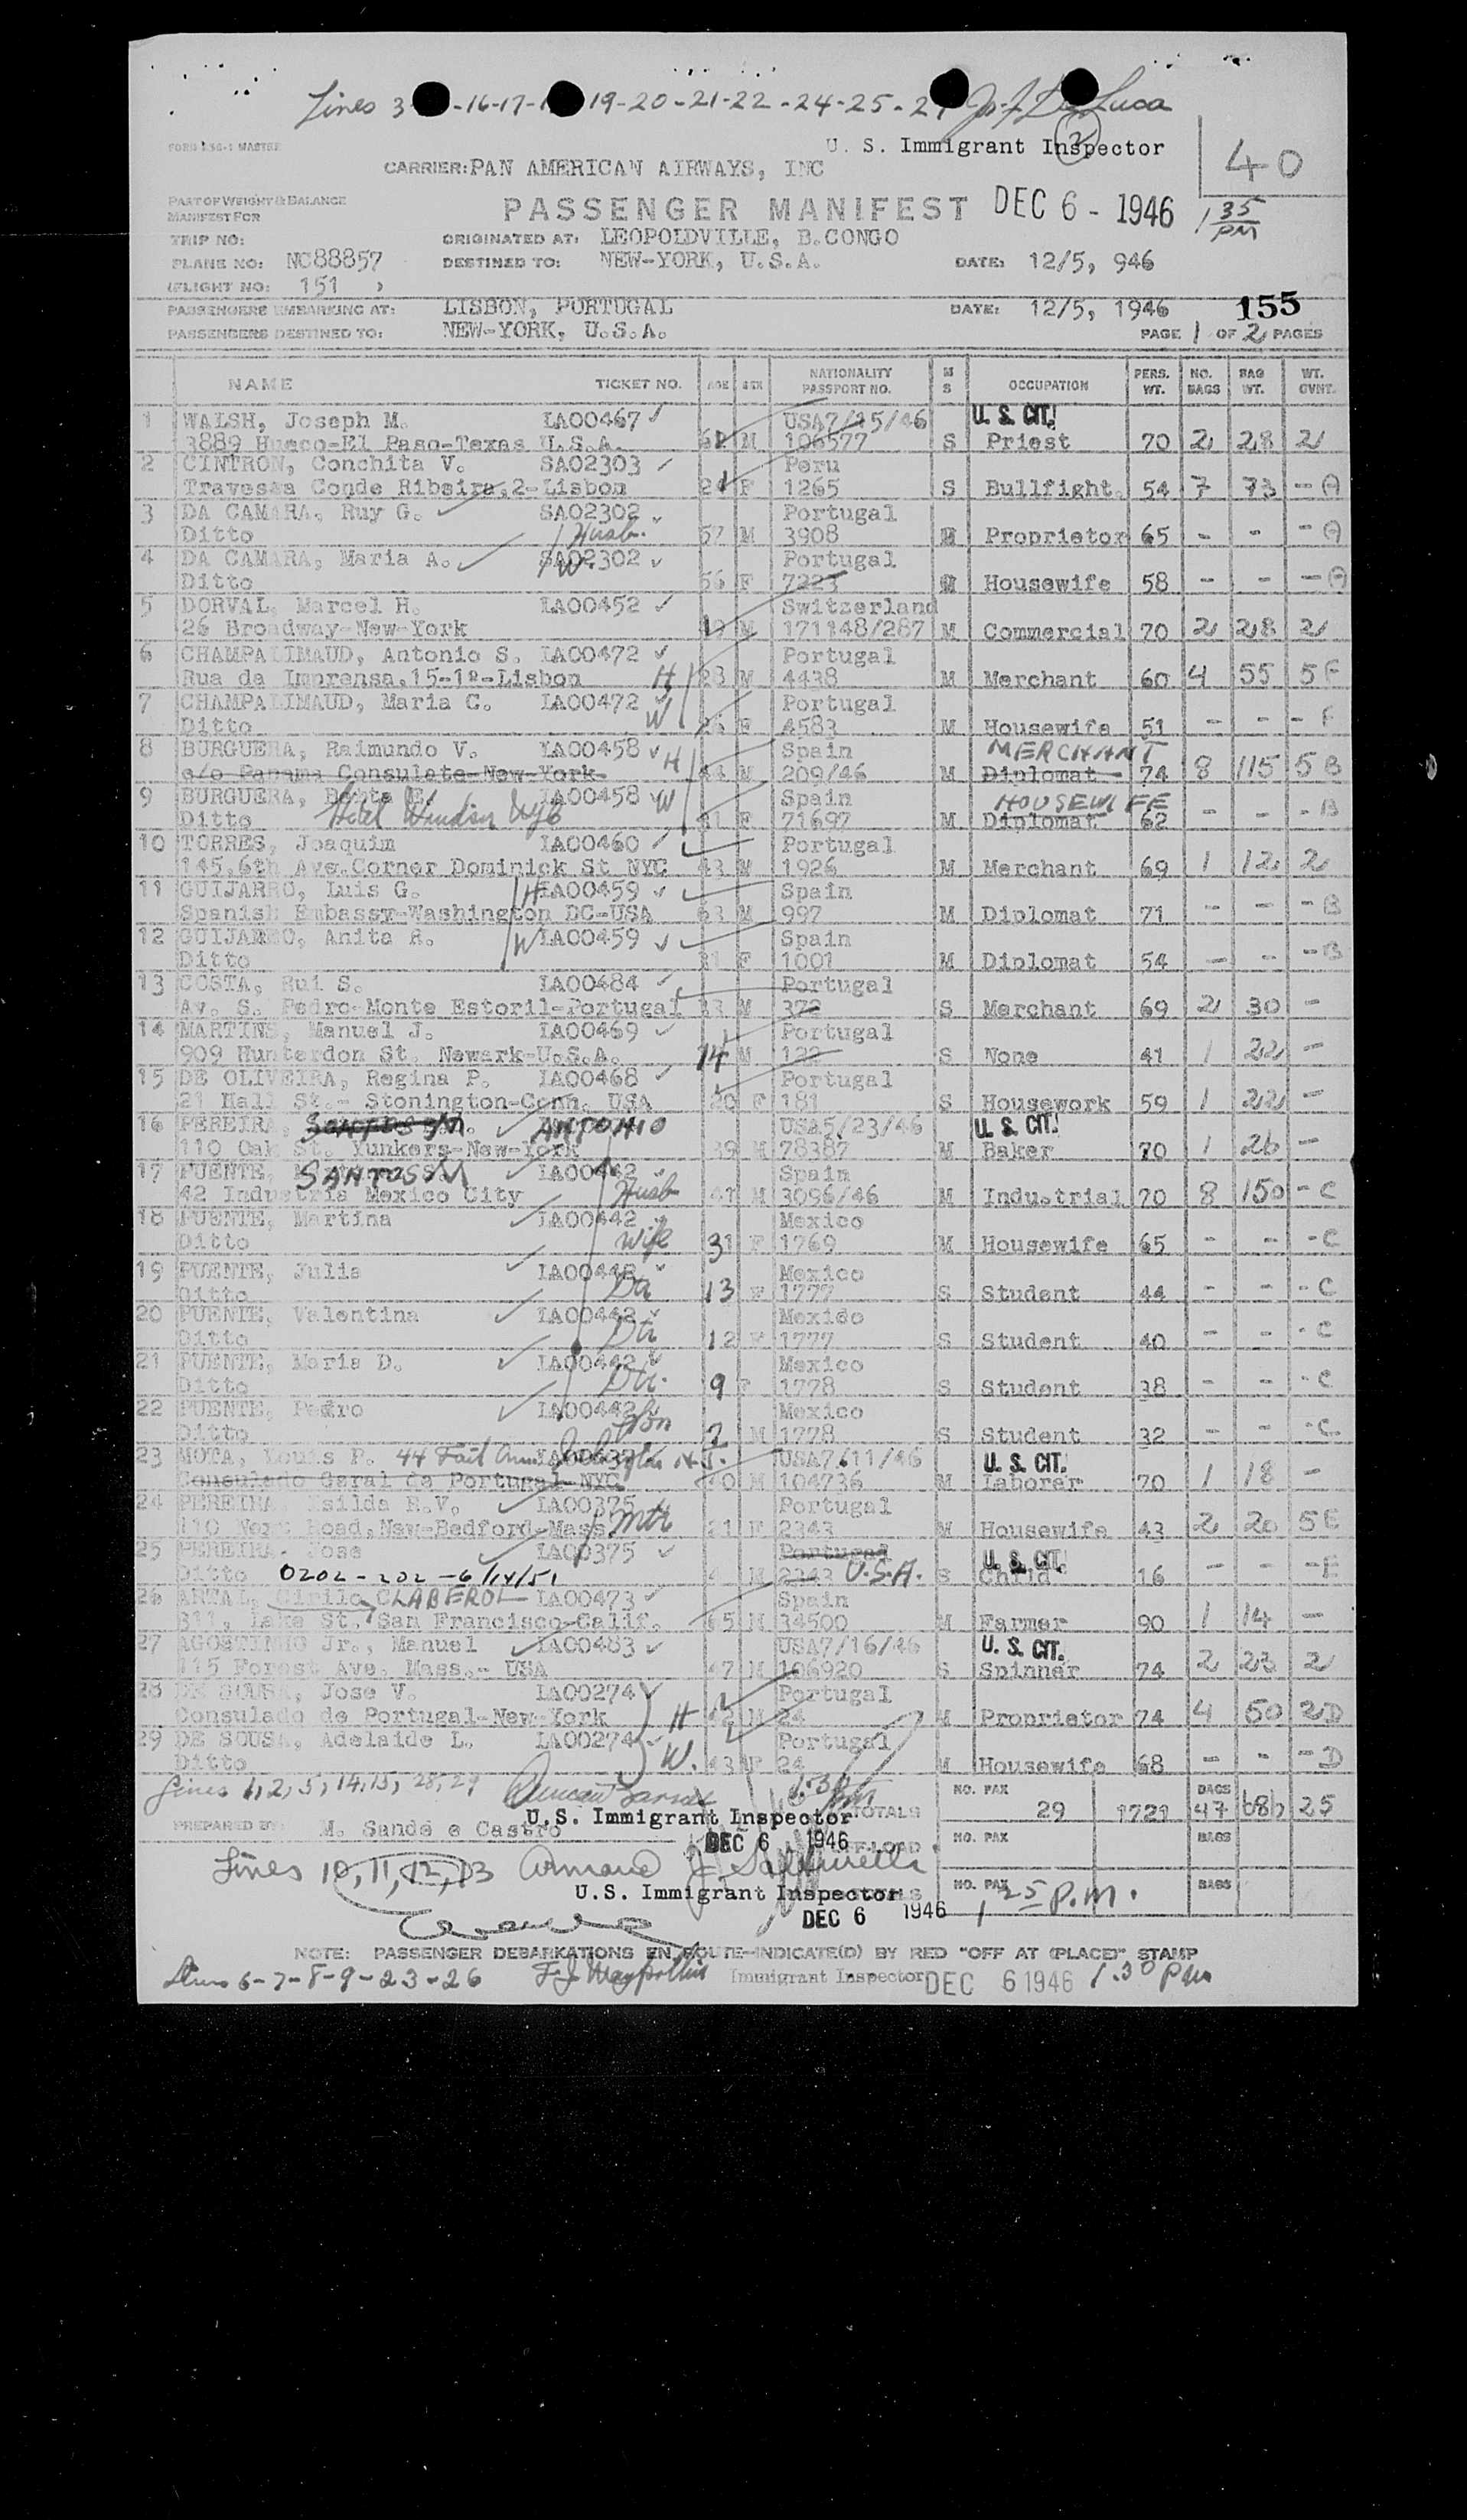 Lines 3 -16-17-1 19-20-21-22-24-25-27 Jos. F. De Luca
U. S. Immigrant Inspector
40
CARRIER: PAN AMERICAN AIRWAYS, INC
PART OF WEIGHT & BALANCE
MANIFEST FOR
PASSENGER MANIFEST DEC 6 - 1946 1 35 PM
TRIP NO: ORIGINATED AT: LEOPOLDVILLE, B.CONGO
PLANE NO: NC88857 DESTINED TO: NEW-YORK, U.S.A. DATE: 12/5, 946
(FLIGHT NO: 151 )
PASSENGERS EMBARKING AT: LISBON, PORTUGAL DATE: 12/5, 1946 155
PASSENGERS DESTINED TO: NEW-YORK, U.S.A. PAGE 1 OF 2 PAGES
NAME TICKET NO. AGE SEX NATIONALITY PASSPORT NO. M S OCCUPATION PERS. WT. NO. BAGS BAG WT. WT. OVNT.
1 WALSH, Joseph M. LA00467 USA7/15/46 U. S. CIT.
3889 Hueco-El Paso-Texas U.S.A. M 106577 S Priest 70 2 28 2
2 CINTRON, Conchita V. SA02303 Peru
Travessa Conde Ribeira,2-Lisbon F 1265 S Bullfight. 54 7 73 - A
3 DA CAMARA, Ruy G. SA02302 Portugal
Ditto Husb. 57 M 3908 M Proprietor 65 - - - A
4 DA CAMARA, Maria A. SA02302 Portugal
Ditto W. 56 F 7223 M Housewife 58 - - - A
5 DORVAL, Marcel H. LA00452 Switzerland
26 Broadway-New-York M 171148/287 M Commercial 70 2 28 2
6 CHAMPALIMAUD, Antonio S. LA00472 Portugal
Rua da Imprensa,15-1º-Lisbon H 28 M 4438 M Merchant 60 4 55 5 F
7 CHAMPALIMAUD, Maria C. LA00472 Portugal
Ditto W F 4583 M Housewife 51 - - - F
8 BURGUERA, Raimundo V. LA00458 H Spain MERCHANT
c/o Panama Consulate-New-York- M 209/46 M Diplomat 74 8 115 5 B
9 BURGUERA, E. LA00458 W Spain HOUSEWIFE
Ditto Hotel Windsor NYC F 71697 M Diplomat 62 - - - B
10 TORRES, Joaquim LA00460 Portugal
145,6th Ave.Corner Dominick St NYC 43 M 1926 M Merchant 69 1 12 2
11 GUIJARRO, Luis G. H LA00459 Spain
Spanish Embassy-Washington DC-USA M 997 M Diplomat 71 - - - B
12 GUIJARRO, Anita R. W LA00459 Spain
Ditto F 1001 M Diplomat 54 - - - B
13 COSTA, Rui S. LA00484 Portugal
Av. S. Pedro-Monte Estoril-Portugal M 372 S Merchant 69 2 30 -
14 MARTINS, Manuel J. LA00469 Portugal
909 Hunterdon St. Newark-U.S.A. 14 M 122 S None 41 1 22 -
15 DE OLIVEIRA, Regina P. LA00468 Portugal
21 Hall St.- Stonington-Conn. USA 20 F 181 S Housework 59 1 22 -
16 PEREIRA, ANTONIO USA5/23/46 U. S. CIT.
110 Oak St. Yunkers-New-York 39 M 78387 M Baker 70 1 26 -
17 PUENTE, SANTOS M LA00442 Spain
42 Industria Mexico City Husb M 3096/46 M Industrial 70 8 150 - C
18 PUENTE, Martina LA00442 Mexico
Ditto Wife 31 F 1769 M Housewife 65 - - - C
19 PUENTE, Julia LA00442 Mexico
Ditto Dtr 13 F 1777 S Student 44 - - - C
20 PUENTE, Valentina LA00442 Mexico
Ditto Dtr 12 F 1777 S Student 40 - - - C
21 PUENTE, Maria D. LA00442 Mexico
Ditto Dtr. 9 F 1778 S Student 38 - - - C
22 PUENTE, Pedro LA00442 Mexico
Ditto Son 7 M 1778 S Student 32 - - - C
23 MOTA, Louis P. 44 N.J. USA7/11/46 U. S. CIT.
Consulado Geral de Portugal-NYC 40 M 104736 M Laborer 70 1 18 -
24 PEREIRA, Esilda R.V. LA00375 Portugal
110 Road,New-Bedford-Mass Mtr 21 F 2343 M Housewife 43 2 20 5 E
25 PEREIRA- Jose LA00375 Portugal U. S. CIT.
Ditto 0202-202-6/14/51 M 2343 U.S.A. S Child 16 - - - E
26 ANTAL, Cirilo CLABEROL LA00473 Spain
311, Lake St. San Francisco-Calif. M 34500 M Farmer 90 1 14 -
27 AGOSTINHO Jr., Manuel LA00483 USA7/16/46 U. S. CIT.
115 Forest Ave. Mass.- USA 47 M 106920 S Spinner 74 2 23 2
28 DE SOUSA, Jose V. LA00274 Portugal
Consulado de Portugal-New-York H M 24 M Proprietor 74 4 50 2 D
29 DE SOUSA, Adelaide L. LA00274 Portugal
Ditto W. 43 F 24 M Housewife 68 - - - D
Lines 1, 2, 5, 14, 15, 28, 29 1.30 pm NO. PAX BAGS
U.S. Immigrant Inspector TOTALS 29 1721 47 25
PREPARED BY: M. Sande e Castro DEC 6 1946 NO. PAX BAGS
Lines 10, 11, 12, 13
U.S. Immigrant Inspector NO. PAX 1 25 P.M. BAGS
DEC 6 1946
NOTE: PASSENGER DEBARKATIONS EN ROUTE-INDICATE(D) BY RED "OFF AT (PLACE)" STAMP
Lines 6-7-8-9-23-26 Immigrant Inspector DEC 6 1946 1.30 pm